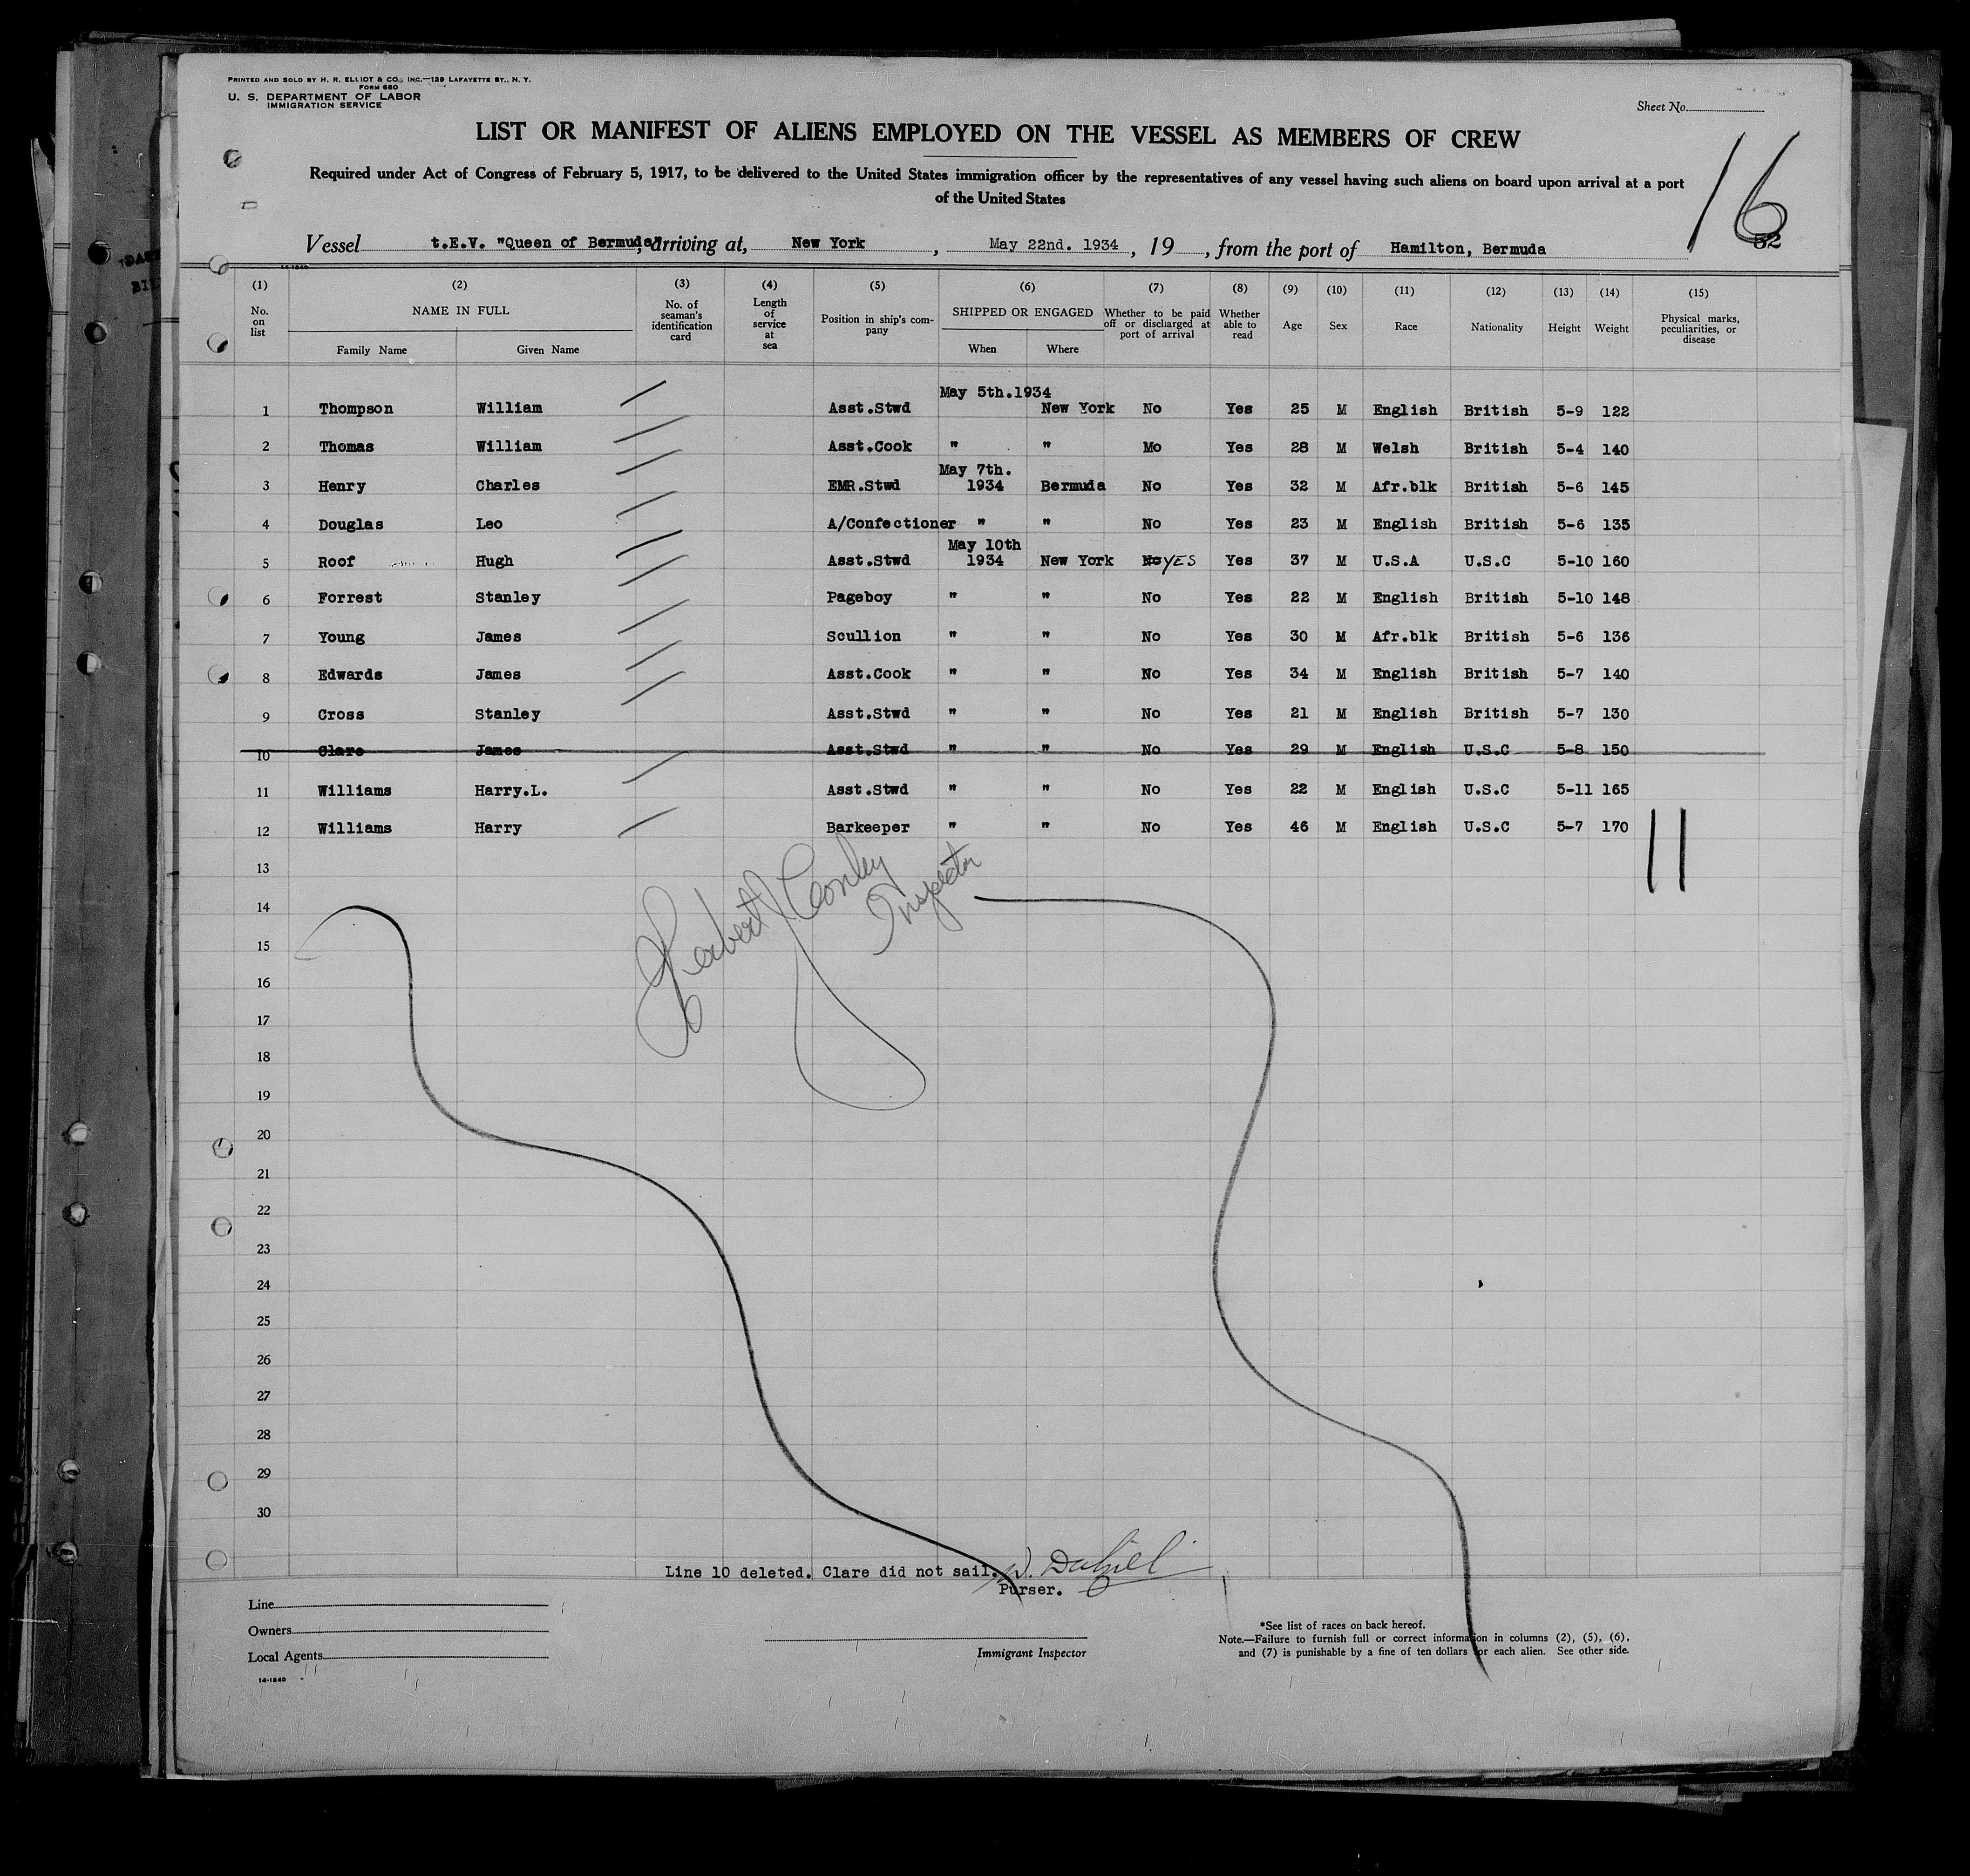 PRINTED AND SOLD BY H. R. ELLIOT & CO., INC.—129 LAFAYETTE ST., N. Y.
FORM 680
U. S. DEPARTMENT OF LABOR
IMMIGRATION SERVICE
Sheet No.
LIST OR MANIFEST OF ALIENS EMPLOYED ON THE VESSEL AS MEMBERS OF CREW
16
Required under Act of Congress of February 5, 1917, to be delivered to the United States immigration officer by the representatives of any vessel having such aliens on board upon arrival at a port
of the United States
32
Vessel t.E.V. "Queen of Bermuda", arriving at, New York, May 22nd. 1934, 19, from the port of Hamilton, Bermuda
14-1240
(1) (2) (3) (4) (5) (6) (7) (8) (9) (10) (11) (12) (13) (14) (15)
No. on list NAME IN FULL Family Name Given Name No. of seaman's identification card Length of service at sea Position in ship's company SHIPPED OR ENGAGED When Where Whether to be paid off or discharged at port of arrival Whether able to read Age Sex Race Nationality Height Weight Physical marks, peculiarities, or disease
May 5th.1934
1 Thompson William Asst.Stwd New York No Yes 25 M English British 5-9 122
2 Thomas William Asst.Cook " " Mo Yes 28 M Welsh British 5-4 140
May 7th.
3 Henry Charles EMR.Stwd 1934 Bermuda No Yes 32 M Afr.blk British 5-6 145
4 Douglas Leo A/Confectioner " " No Yes 23 M English British 5-6 135
May 10th
5 Roof Hugh Asst.Stwd 1934 New York No YES Yes 37 M U.S.A U.S.C 5-10 160
6 Forrest Stanley Pageboy " " No Yes 22 M English British 5-10 148
7 Young James Scullion " " No Yes 30 M Afr.blk British 5-6 136
8 Edwards James Asst.Cook " " No Yes 34 M English British 5-7 140
9 Cross Stanley Asst.Stwd " " No Yes 21 M English British 5-7 130
10 Clare James Asst.Stwd " " No Yes 29 M English U.S.C 5-8 150
11 Williams Harry.L. Asst.Stwd " " No Yes 22 M English U.S.C 5-11 165
12 Williams Harry Barkeeper " " No Yes 46 M English U.S.C 5-7 170
11
13
Herbert J Conley
Inspector
14
15
16
17
18
19
20
21
22
23
24
25
26
27
28
29
30
Line 10 deleted. Clare did not sail.
Purser.
Line
Owners
Local Agents
14-1240
Immigrant Inspector
*See list of races on back hereof.
Note.—Failure to furnish full or correct information in columns (2), (5), (6),
and (7) is punishable by a fine of ten dollars for each alien. See other side.